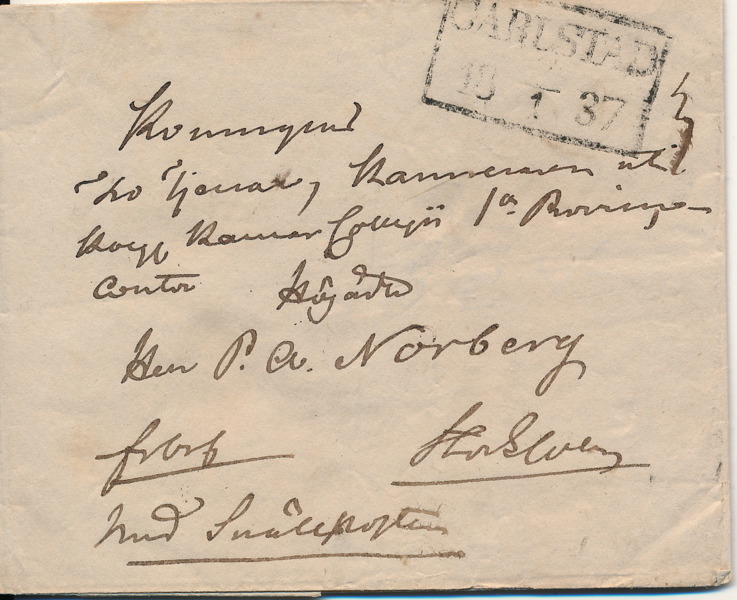 CARLSTAD
13 1 37
Konungens
Tro Tjenare, Kammereren uti
Kongl Kammar Collegii 1a Provinçe
Contor Högädle
Herr P. A. Norberg
frbrf Stockholm
Med Snällposten